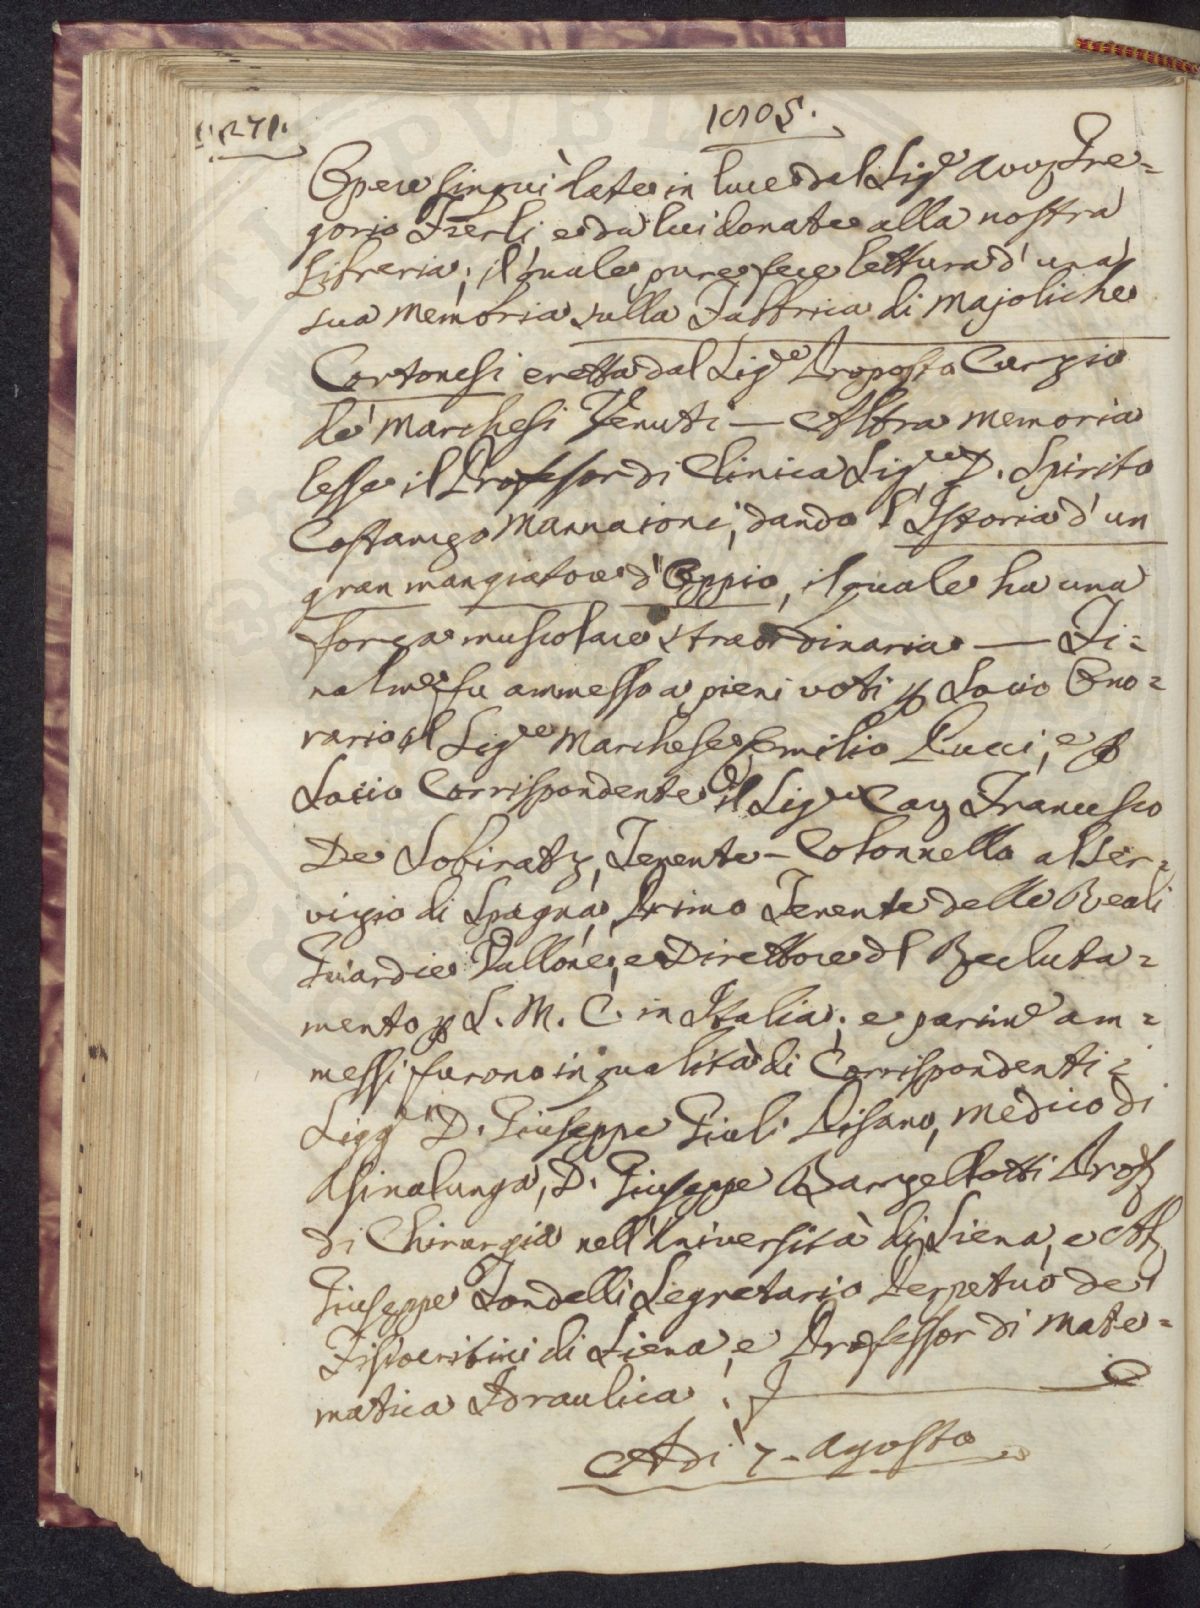 271.
1805.
Opere sin qui date in luce dal Sig.e Avv. Gre=
gorio Fierli, e da lui donate alla nostra
Libreria; il quale pure fece lettura d'una
sua memoria sulla Fabbrica di Majoliche
Cortonesi eretta dal Sig.e Proposto Curzio
de' Marchesi Venuti — Altra memoria
lesse il Professor di Clinica Sig.re D. Spirito
Costanzo Mannaioni, dando l'Istoria d'un
gran mangiatore d'Oppio, il quale ha una
forza muscolare straordinaria — Fi=
nalm.e fu ammesso a pieni voti p Socio Ono=
rario il Sig.re Marchese Emilio Pucci, e p
Socio Corrispondente il Sig.re Cav. Francesco
De Sobiratz, Tenente-Colonnello al Ser=
vizio di Spagna, Primo Tenente delle Reali
Guardie Vallone, e Direttore dl Recluta=
mento p S. M. C. in Italia; e parim.e am=
messi furono in qualità di Corrispondenti i
Sigg.ri D. Giuseppe Giuli Pisano, Medico di
Asinalunga, D. Giuseppe Barzellotti Prof.
di Chirurgia nell'Università di Siena, e Ab.
Giuseppe Pondelli Segretario Perpetuo de'
Fisiocritici di Siena, e Professor di Mate=
matica Idraulica.
Adì 7. Agosto